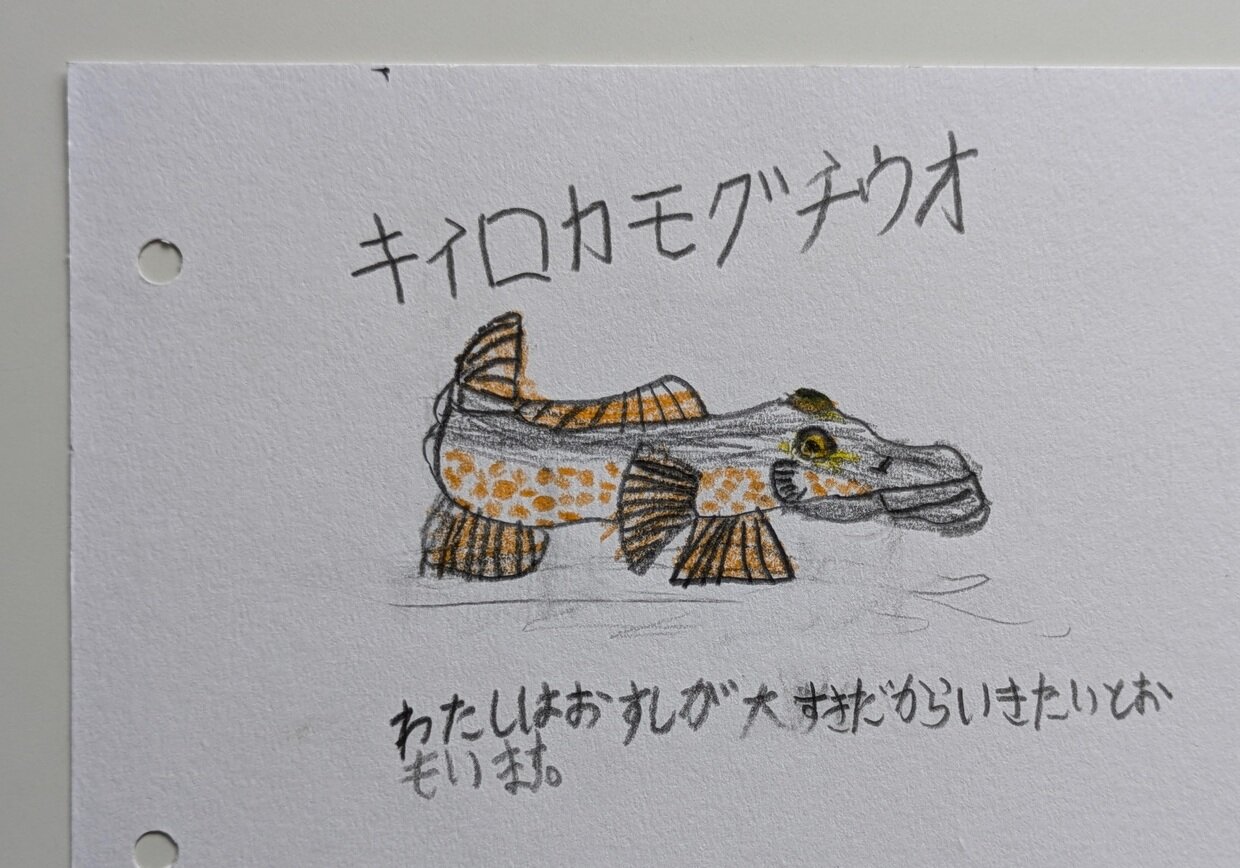 キイロカモグチウオ
わたしはおすしが大すきだからいきたいとお
もいます。